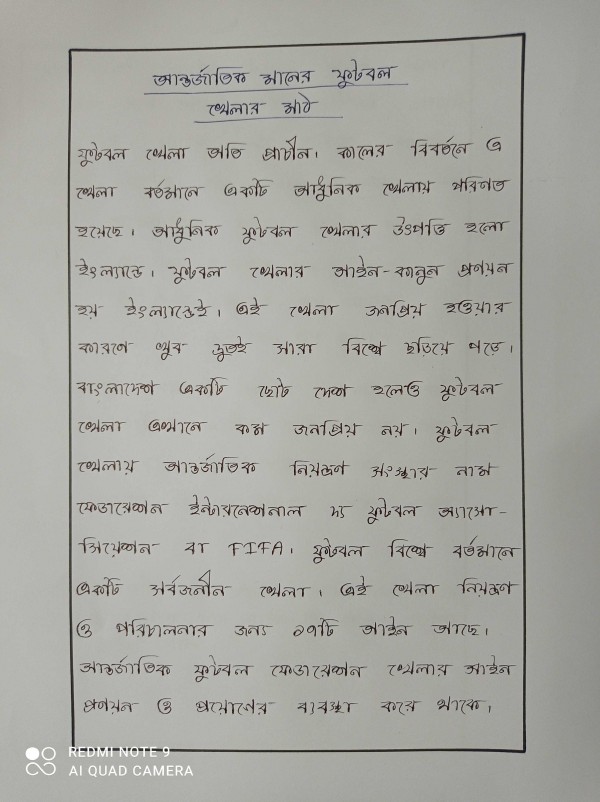 আন্তর্জাতিক মানের ফুটবল
খেলার মাঠ
ফুটবল খেলা অতি প্রাচীন। কালের বিবর্তনে এ
খেলা বর্তমানে একটি আধুনিক খেলায় পরিণত
হয়েছে। আধুনিক ফুটবল খেলার উৎপত্তি হলো
ইংল্যান্ডে। ফুটবল খেলার আইন-কানুন প্রণয়ন
হয় ইংল্যান্ডেই। এই খেলা জনপ্রিয় হওয়ার
কারণে খুব দ্রুতই সারা বিশ্বে ছড়িয়ে পড়ে।
বাংলাদেশ একটি ছোট দেশ হলেও ফুটবল
খেলা এখানে কম জনপ্রিয় নয়। ফুটবল
খেলায় আন্তর্জাতিক নিয়ন্ত্রণ সংস্থার নাম
ফেডারেশন ইন্টারনেশনাল দ্য ফুটবল অ্যাসো-
সিয়েশন বা FIFA। ফুটবল বিশ্বে বর্তমানে
একটি সর্বজনীন খেলা। এই খেলা নিয়ন্ত্রণ
ও পরিচালনার জন্য ১৭টি আইন আছে।
আন্তর্জাতিক ফুটবল ফেডারেশন খেলার আইন
প্রণয়ন ও প্রয়োগের ব্যবস্থা করে থাকে।
REDMI NOTE 9
AI QUAD CAMERA